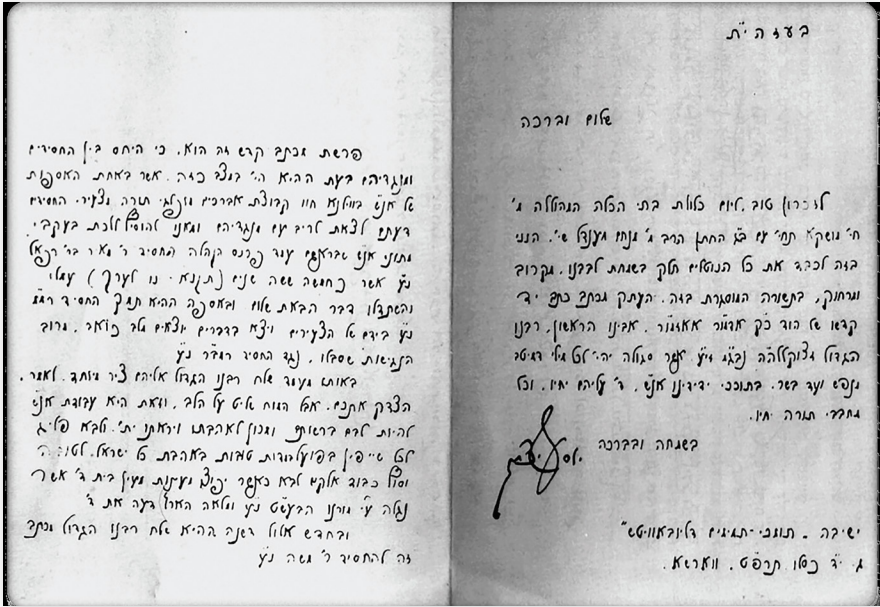 בעזה״ת
שלום וברכה
לזכרון טוב, ליום כלולת בתי הכלה המהוללה מ׳
חי׳ מושקא תחי׳ עם ב״ג החתן הרב מ׳ מנחם מענדל שי׳, הנני
בזה לכבד את כל הנוטלים חלק בשמחת לבבנו, מקרוב
ומרחוק, בתשורה המוסגרת בזה, העתק מכתב כתב יד
קדשו של הוד כ״ק אדמו״ר אאזמו״ר, אבינו הראשון, רבנו
הגדול נבג״מ זי״ע אשר סגולה יהי׳ לכל מילי דמיטב
מנפש ועד בשר, בתוככי ידידינו אנ״ש, ד׳ עליהם יחיו, וכל
מחבבי תורה יחיו.
בשמחה ובברכה
ישיבה - תומכי-תמימים דליובאוויטש״
ג׳ י״ד כסלו תרפ״ט. ווארשא.
פרשת מכתב קדש זה הוא, כי היחס בין החסידים
ומנגדיהם בעת ההיא הי׳ במצב כזה, אשר באחת האספות
של אנ״ש בווילנא חוו קבוצת אברכים מופלגי תורה מצעירי החסידים
דעתם לצאת לריב עם מנגדיהם ומאנו להוסיף ללכת בעקבי
מתוני אנ״ש שבראשם עמד פרנס הקהלה החסיד ר׳ מאיר בר׳ רפאל
נ״ע אשר כחמשה ששה שנים (תקנ״א - נו לערך) עמלו
והשתדלו דבר הבאת שלום ובאספה ההיא תמך החסיד
נ״ע בידם של הצעירים ויצא בדברים יוצאים מלב כואב, מרוב
הנגישות שסבלו, נגד החסיד נ״ע
באותו מעמד שלח רבנו הגדול אליהם ציר מיוחד, לאמר,
הצדק אתכם, אבל המוח שליט על הלב, וזאת היא עבודת אנ״ש
להיות לבם ברשותם ומכון לאהבתו ויראתו ית׳, ולבא
לכל בפועל טובות באהבת כל ישראל, לטוב ה׳
כבוד אלקים לבא כאשר יפוצו מעינות מעין בית ד׳ אשר
נגלה ע״י מורנו הבעש״ט נ״ע ומלאה הארץ דעה את ד׳
ובחדש אלול דשנה ההיא שלח רבנו הגדול מכתב
זה להחסיד ר׳ משה נ״ע